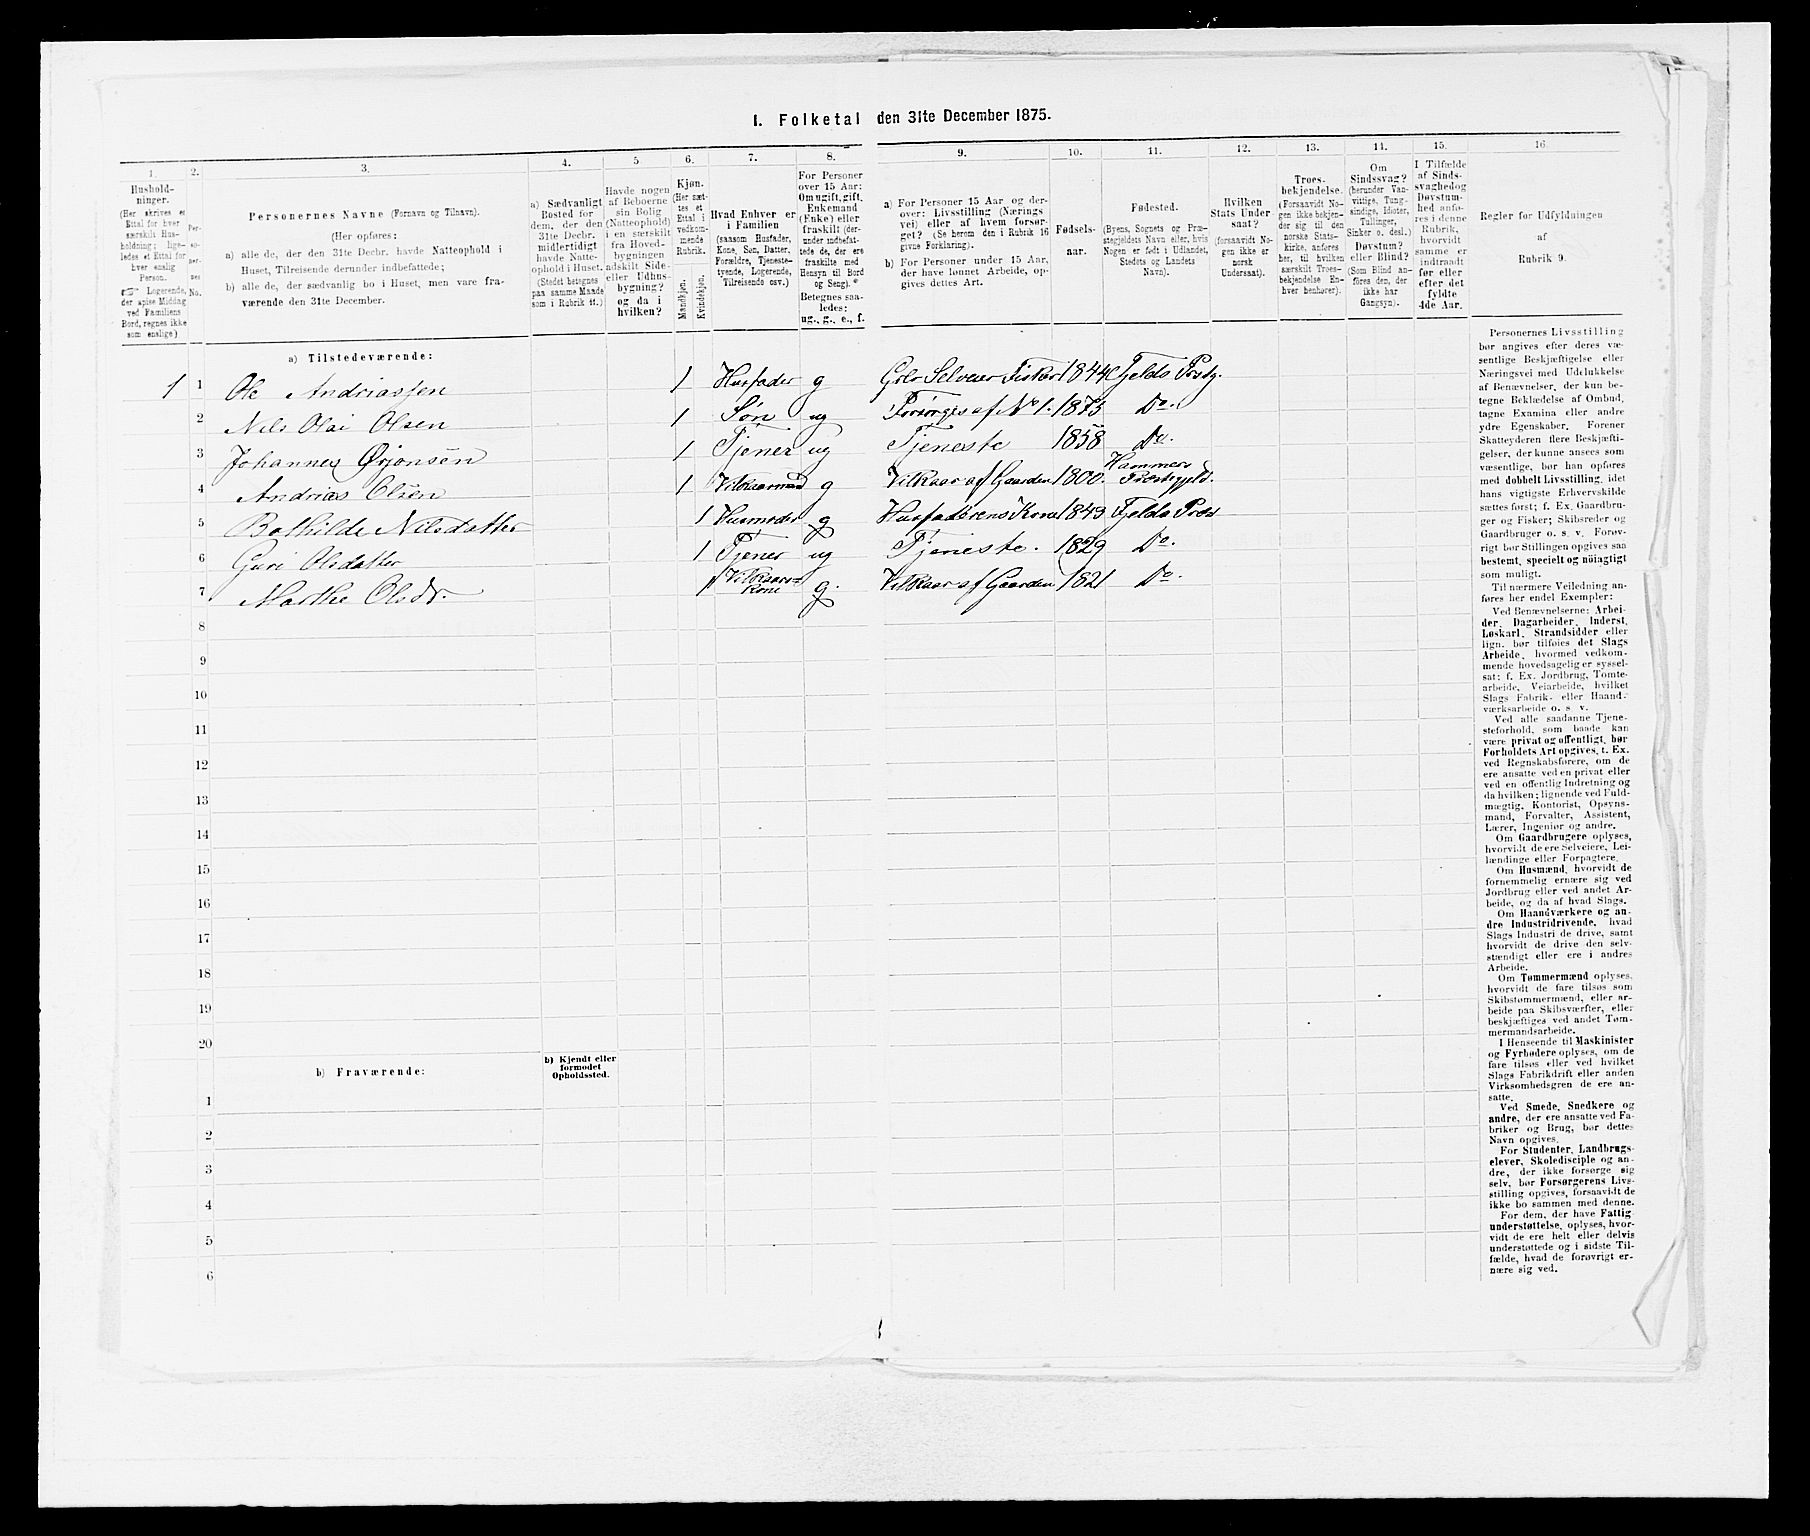 I. Folketal den 31te December 1875.
1. 2. 3. 4. 5. 6. 7. 8. 9. 10. 11. 12. 13. 14. 15. 16.
Hushold-
ninger.
(Her skrives et
Ettal for hver
særskilt Hus-
holdning; lige-
ledes et Ettal for
hver enslig
Person.
☞ Logerende,
der spise Middag
ved Familiens
Bord, regnes ikke
som enslige.)
Per-
so-
ner-
nes
No.
Personernes Navne (Fornavn og Tilnavn).
(Her opføres:
a) alle de, der den 31te Decbr. havde Natteophold i
Huset, Tilreisende derunder indbefattede;
b) alle de, der sædvanlig bo i Huset, men vare fra-
værende den 31te December.
a) Sædvanligt
Bosted for
dem, der den
31te Decbr.
midlertidigt
havde Natte-
ophold i Huset.
(Stedet betegnes
paa samme Maade
som i Rubrik 11.)
Havde nogen
af Beboerne
sin Bolig
(Natteophold)
i en særskilt
fra Hoved-
bygningen
adskilt Side-
eller Udhus-
bygning?
og da i
hvilken?
Kjøn.
(Her sæt-
tes et
Ettal i
vedkom-
mende
Rubrik.
Mandkjøn.
Kvindekjøn.
Hvad Enhver er
i Familien
(saasom Husfader,
Kone, Søn, Datter,
Forældre, Tjeneste-
tyende, Logerende,
Tilreisende osv.)
For Personer
over 15 Aar:
Om ugift, gift,
Enkemand
(Enke) eller
fraskilt (der-
under indbefat-
tede de, der ere
fraskilte med
Hensyn til Bord
og Seng). *
Betegnes saa-
ledes:
ug., g., e., f.
a) For Personer 15 Aar og der-
over: Livsstilling (Nærings
vei) eller af hvem forsør-
get? (Se herom den i Rubrik 16
givne Forklaring).
b) For Personer under 15 Aar,
der have lønnet Arbeide, op-
gives dettes Art.
Fødsels-
aar.
Fødested.
(Byens, Sognets og Præ-
stegjeldets Navn eller, hvis
Nogen er født i Udlandet,
Stedets og Landets
Navn).
Hvilken
Stats Under-
saat?
(forsaavidt No-
gen ikke er
norsk
Undersaat).
Troes-
bekjendelse.
(Forsaavidt No-
gen ikke bekjen-
der sig til den
norske Stats-
kirke, anføres
her, til hvilken
særskilt Troes-
bekjendelse En-
hver henhører).
Om
Sindssvag?
(herunder Van-
vittige, Tung-
sindige, Idioter,
Tullinger,
Sinker o. desl.)
Døvstum?
eller Blind?
(Som Blind an-
føres den, der
ikke har
Gangsyn).
I Tilfælde
af Sinds-
svaghed og
Døvstum-
hed anfø-
res i denne
Rubrik,
hvorvidt
samme er
indtraadt
før eller
efter det
fyldte
4de Aar.
Regler for Udfyldningen
af
Rubrik 9.
a) Tilstedeværende:
1 1 Ole Andriassen 1 Husfader g Grbr Selveier Fisker 1844 Fjelds Præstg.
2 Nils Olai Olsen 1 Søn ug Forsørges af No 1. 1875 Do.
3 Johannes Ørjansen 1 Tjener ug Tjeneste 1858 Do.
4 Andrias Olsen 1 Vilkaarmand g Vilkaar af Gaarden 1800. Hammers Præstegjeld.
5 Bathilde Nilsdatter 1 Husmoder g Husfaderens Kone 1849 Fjelds Præs
6 Guri Olsdatter 1 Tjener ug Tjeneste. 1829 Do.
7 Marthe Olsdr. 1 Vilkaars-Kone g. Vilkaar af Gaarden 1821 Do.
8
9
10
11
12
13
14
15
16
17
18
19
20
b) Fraværende:
b) Kjendt eller
formodet
Opholdssted.
1
2
3
4
5
6
Personernes Livsstilling
bør angives efter deres væ-
sentlige Beskjæftigelse eller
Næringsvei med Udelukkelse
af Benævnelser, der kun be-
tegne Beklædelse af Ombud,
tagne Examina eller andre
ydre Egenskaber. Forener
Skatteyderen flere Beskjæfti-
gelser, der kunne ansees som
væsentlige, bør han opføres
med dobbelt Livsstilling, idet
hans vigtigste Erhvervskilde
sættes først; f. Ex. Gaardbru-
ger og Fisker; Skibsreder og
Gaardbruger o. s. v. Forøv-
rigt bør Stillingen opgives saa
bestemt, specielt og nöiagtigt
som muligt.
Til nærmere Veiledning an-
føres her endel Exempler:
Ved Benævnelserne: Arbei-
der, Dagarbeider, Inderst,
Løskarl, Strandsidder eller
lign. bør tilføies det Slags
Arbeide, hvormed vedkom-
mende hovedsagelig er syssel-
sat; f. Ex. Jordbrug, Tomte-
arbeide, Veiarbeide, hvilket
Slags Fabrik- eller Haand-
værksarbeide o. s. v.
Ved alle saadanne Tjene-
steforhold, som baade kan
være privat og offentligt, bør
Forholdets Art opgives, t. Ex.
ved Regnskabsførere, om de
ere ansatte ved en privat eller
ved en offentlig Indretning og
da hvilken; lignende ved Fuld-
mægtig, Kontorist, Opsyns-
mand, Forvalter, Assistent,
Lærer, Ingeniør og andre.
Om Gaardbrugere oplyses,
hvorvidt de ere Selveiere, Lei-
lændinge eller Forpagtere.
Om Husmænd, hvorvidt de
fornemmelig ernære sig ved
Jordbrug eller ved andet Ar-
beide, og da af hvad Slags.
Om Haandværkere og an-
dre Industridrivende, hvad
Slags Industri de drive, samt
hvorvidt de drive den selv-
stændigt eller ere i andres
Arbeide.
Om Tømmermænd oplyses,
hvorvidt de fare tilsøs som
Skibstømmermænd, eller ar-
beide paa Skibsværfter, eller
beskjæftiges ved andet Tøm-
mermandsarbeide.
I Henseende til Maskinister
og Fyrbødere oplyses, om de
fare tilsøs eller ved hvilket
Slags Fabrikdrift eller anden
Virksomhedsgren de ere an-
satte.
Ved Smede, Snedkere og
andre, der ere ansatte ved Fa-
briker og Brug, bør dettes
Navn opgives.
For Studenter, Landbrugs-
elever, Skoledisciple og an-
dre, der ikke forsørge sig
selv, bør Forsørgerens Livs-
stilling opgives, forsaavidt de
ikke bo sammen med denne.
For dem, der have Fattig
understøttelse, oplyses, hvor-
vidt de ere helt eller delvis
understøttede og i sidste Til-
fælde, hvad de forøvrigt er-
nære sig ved.